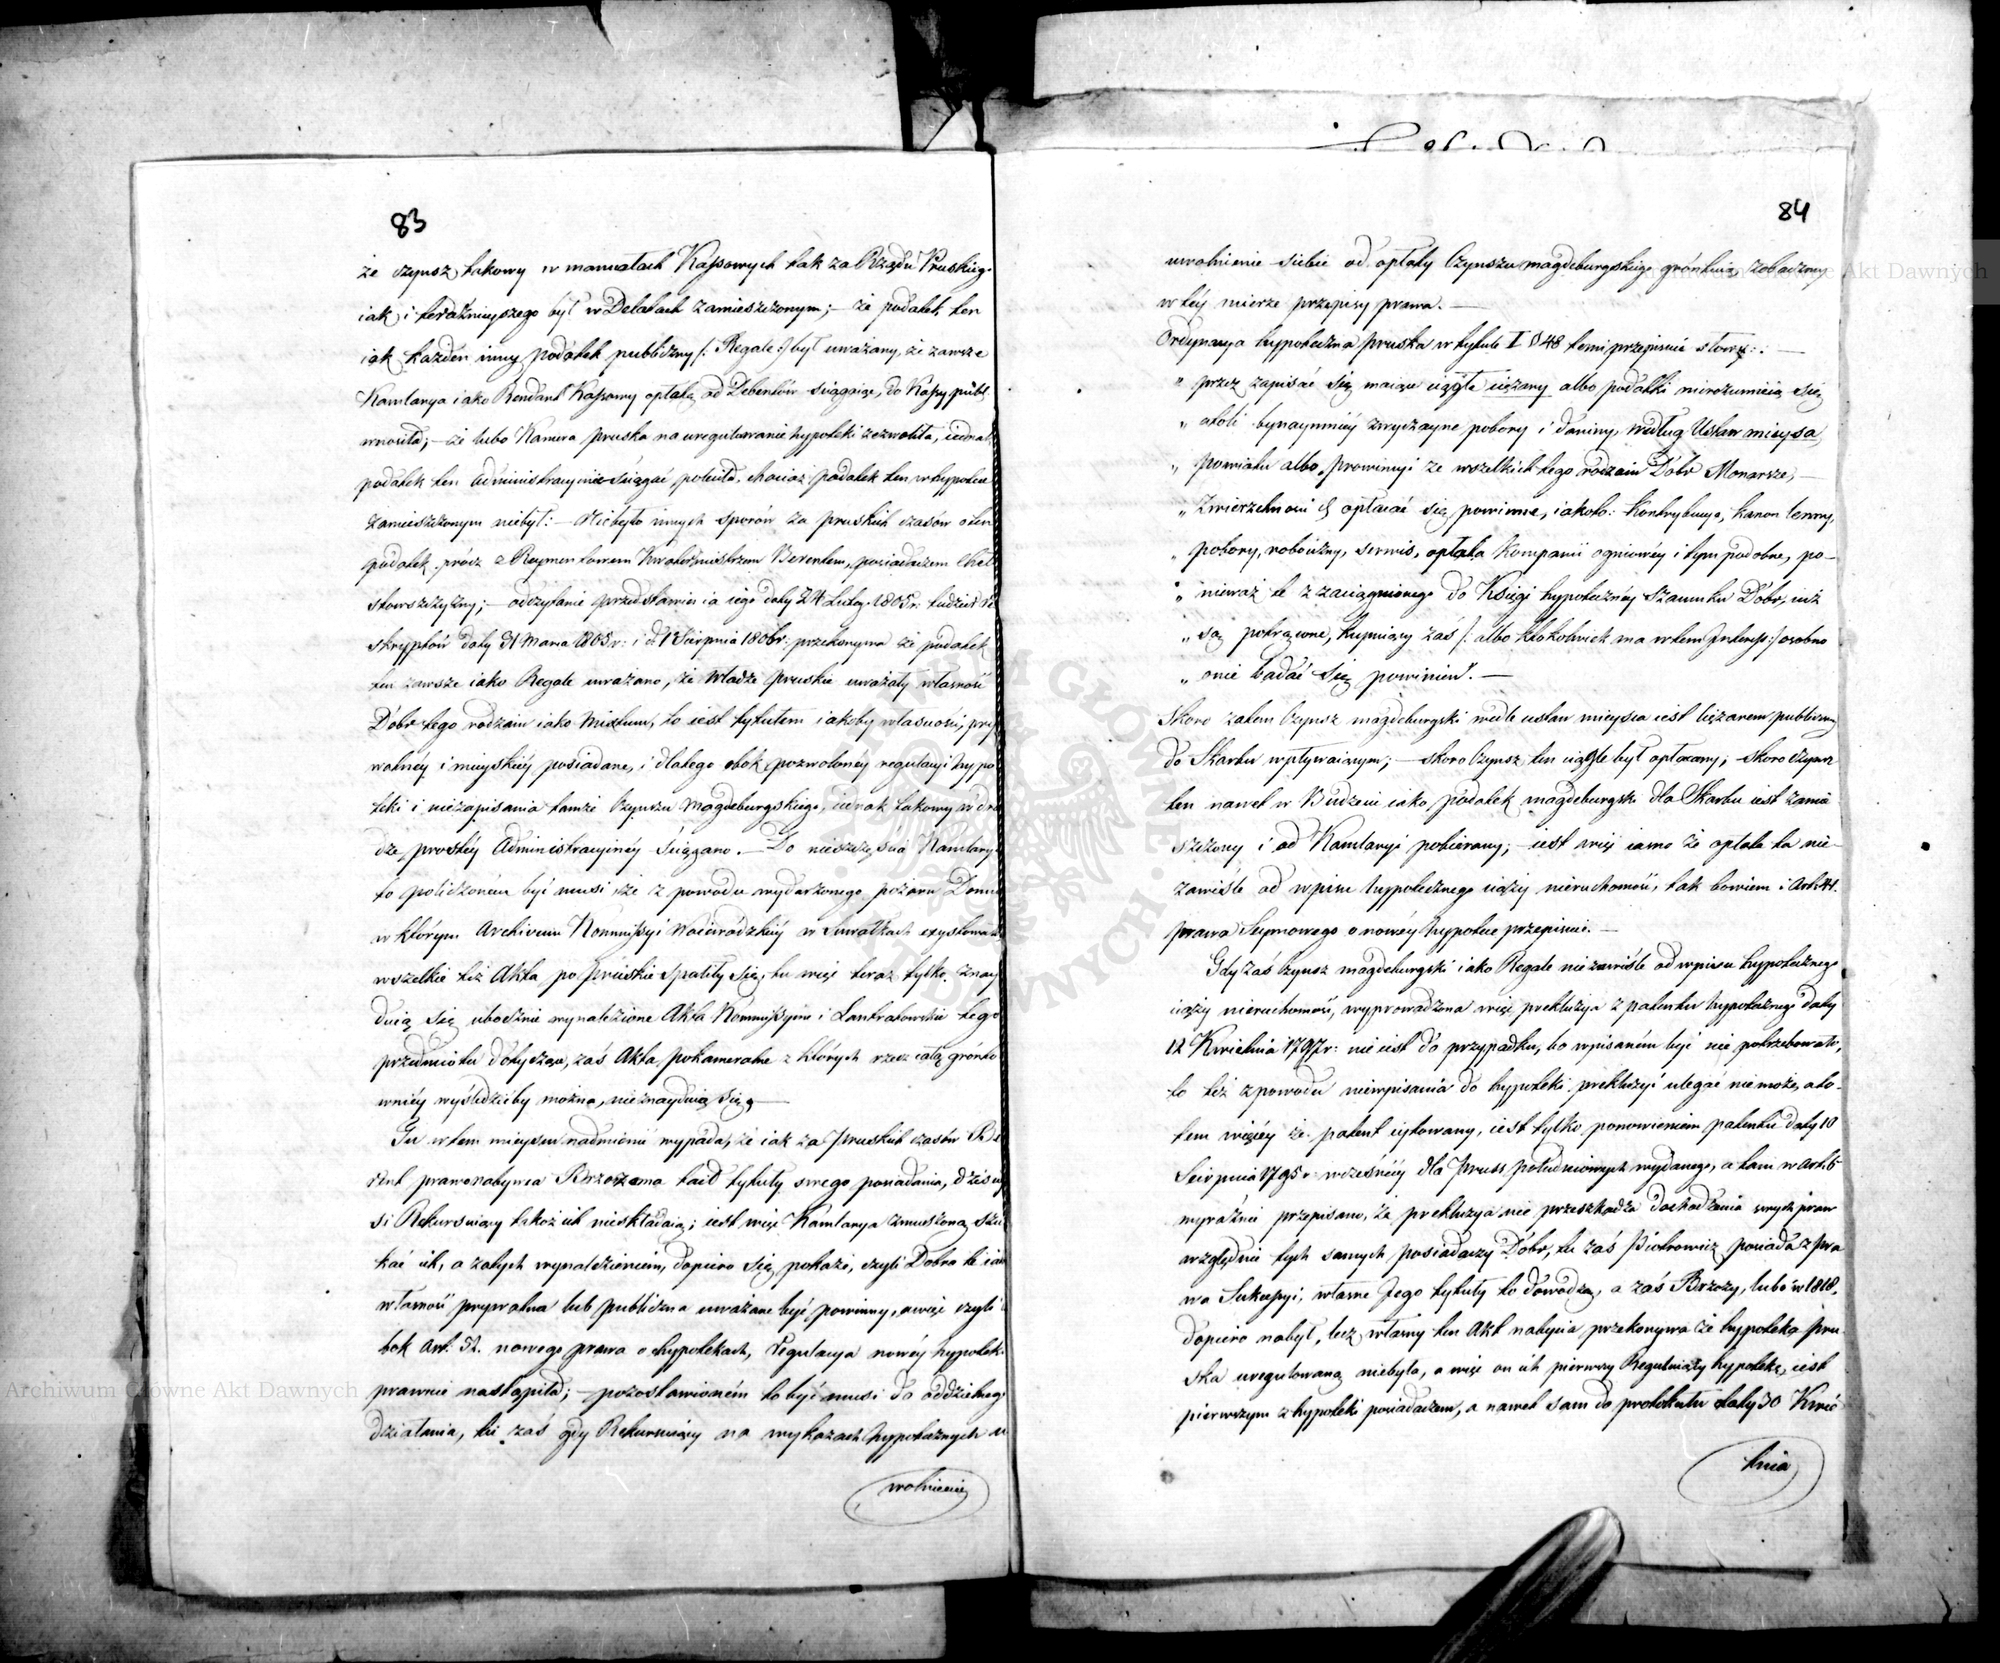 83
że czynsz takowy w manuałach Kassowych tak za Rządu Pruskiego
iak i teraźnieyszego był w Detalach zamieszczonym; — że podatek ten
iak każden inny podatek publiczny /: Regale :/ był uważany, że zawsze
Kamlarya iako Rendant Kassowy opłatę od Debentów ściągaiąc, do Kassy publ.
wnosiła; — że lubo Kamera pruska na uregulowanie hypoteki zezwoliła, iednak
podatek ten administracyinie ściągać poleciła, chociaż podatek ten w hypotece
zamieszczonym niebył: — Niebyło innych sporów za pruskich czasów o ten
podatek, prócz z Reymentowem Kwatermistrzem Berentem, posiadaczem
; — odczytanie przedstawienia iego daty 24 Lutego 1805 r: tudzież Re
skryptów daty 31 Marca 1805 r: i d. 1 Sierpnia 1806 r: przekonywa że podatek
ten zawsze iako Regale uważano, że Władze pruskie uważały własność
Dóbr tego rodzaiu iako Mixtum, to iest tytułem iakoby własności, pry
watnéy i mieyskiéy posiadane, i dlatego obok pozwolonéy regulacyi hypo
teki i niezapisania tamże Czynszu Magdeburgskiego, iednak takowy w dro
dze prostéy Administracyinéy ściągano. — Do nieszczęścia Kamlaryi
to policzoném być musi, że z powodu wydarzonego pożaru Domu
w którym Archivum Kommissyi Woiewódzkiéy w Suwałkach exystowało
wszelkie też Akta po pruskie spaliły się, tu więc teraz tylko znay
duią się ubocznie wynalezione Akta Kommissyine i Lantratowskie tego
przedmiotu dotyczące, zaś Akta pokameralne z których rzecz całą grónto
wniéy wyśledzićby można, nieznayduią się. —
Tu w tem mieyscu nadmienić wypada, że iak za pruskich czasów Be
rent prawonabywca Brzozema taił tytuły swego posiadania, dzisiey
si Rekursuiący takoż ich nieskładaią; iest więc Kamlarya zmuszoną szu
kać ich, a za tych wynalezieniem, dopiero się pokaże, czyli Dobra te iako
własność prywatna lub publiczna uważane być powinny, a więc czyli o
bok Art: 52. nowego prawa o hypotekach, regulacya nowéy hypoteki
prawnie nastąpiła; — pozostawioném to być musi do oddzielnego
działania, tu zaś gdy Rekursuiący na wykazach hypotecznych u
wolnienie
84
uwolnienie siebie od opłaty Czynszu magdeburgskiego gróntuią, zobaczmy
w téy mierze przepisy prawa. —
Ordynacya hypoteczna pruska w tytule I § 48 temi przepisuie słowy: —
„ przez zapisać się maiące ciągłe ciężary albo podatki nierozumieią się
„ atoli bynaymniéy zwyczayne pobory i daniny, według Ustaw mieysca
„ powiatu albo prowincyi ze wszelkich tego rodzaiu Dóbr Monarsze, —
„ Zwierzchności &c opłacać się powinne, iakoto: Kontrybucya, kanon lenny,
„ pobory, robocizny, serwis, opłata Kompanii ogniowéy i tym podobne, po —
„ nieważ te z zaciągnionego do Księgi hypotecznéy szacunku Dóbr, iuż
„ są potrącone, kupuiący zaś /: albo ktokolwiek ma w tem Interess :/ osobno
„ onie badać się powinien”. —
Skoro zatem Czynsz magdeburgski wedle ustaw mieysca iest ciężarem publiczny
do Skarbu wpływaiącym; — skoro Czynsz ten ciągle był opłacany; skoro Czynsz
ten nawet w Budżecie iako podatek magdeburgski dla Skarbu iest zamie
szczony i od Kamlaryi pobierany; — iest więc iasno że opłata ta nie —
zawiśle od wpisu hypotecznego ciąży nieruchomość, tak bowiem i Art: 41.
prawa Seymowego o nowéy hypotece przepisuie. —
Gdy zaś Czynsz magdeburgski iako Regale niezawiśle od wpisu hypotecznego
ciąży nieruchomość, wyprowadzona więc prekluzya z patentu hypotecznego daty
12 Kwietnia 1797 r: nie iest do przypadku, bo wpisaném być nie potrzebowało,
to też z powodu niewpisania do hypoteki prekluzyi ulegać nie może, ato —
tem więcéy że patent cytowany, iest tylko ponowieniem patentu daty 10
Sierpnia 1795 r: wcześniéy dla Pruss południowych wydanego, a tam w art: 6
wyraźnie przepisano, że prekluzya nie przeszkadza dochodzenia swych praw
względnie tych samych posiadaczy Dóbr, tu zaś Piotrowicz posiada z pra
wa Sukcessyi, własne Jego tytuły to dowodzą, a zaś Brzozy, lubo w 1818,
dopiero nabył, lecz własny ten Akt nabycia przekonywa że hypoteka Pru
ska uregulowaną niebyła, a więc on ich pierwszy Reguluiący hypotekę, iest
pierwszym z hypoteki posiadaczem, a nawet sam do protokułu daty 30 Kwie
tnia